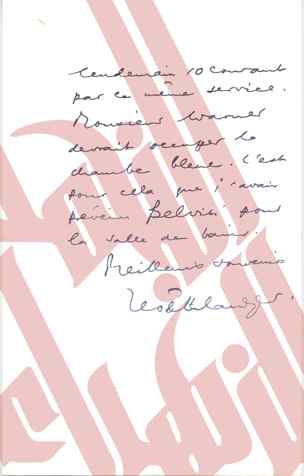 lendemain 10 courant
par ce même service.
Monsieur Warner
devrait occuper la
chambre bleue. C'est
pour cela que j'avais
prévenu Belvis' pour
la salle de bains.
Meilleurs souvenirs